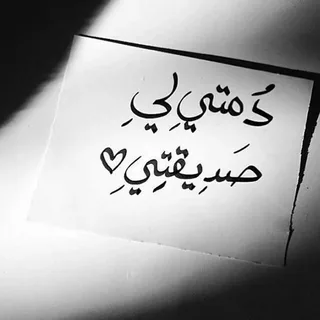 دُمتيِ لِيِ
صَدِيقتِيِ♡